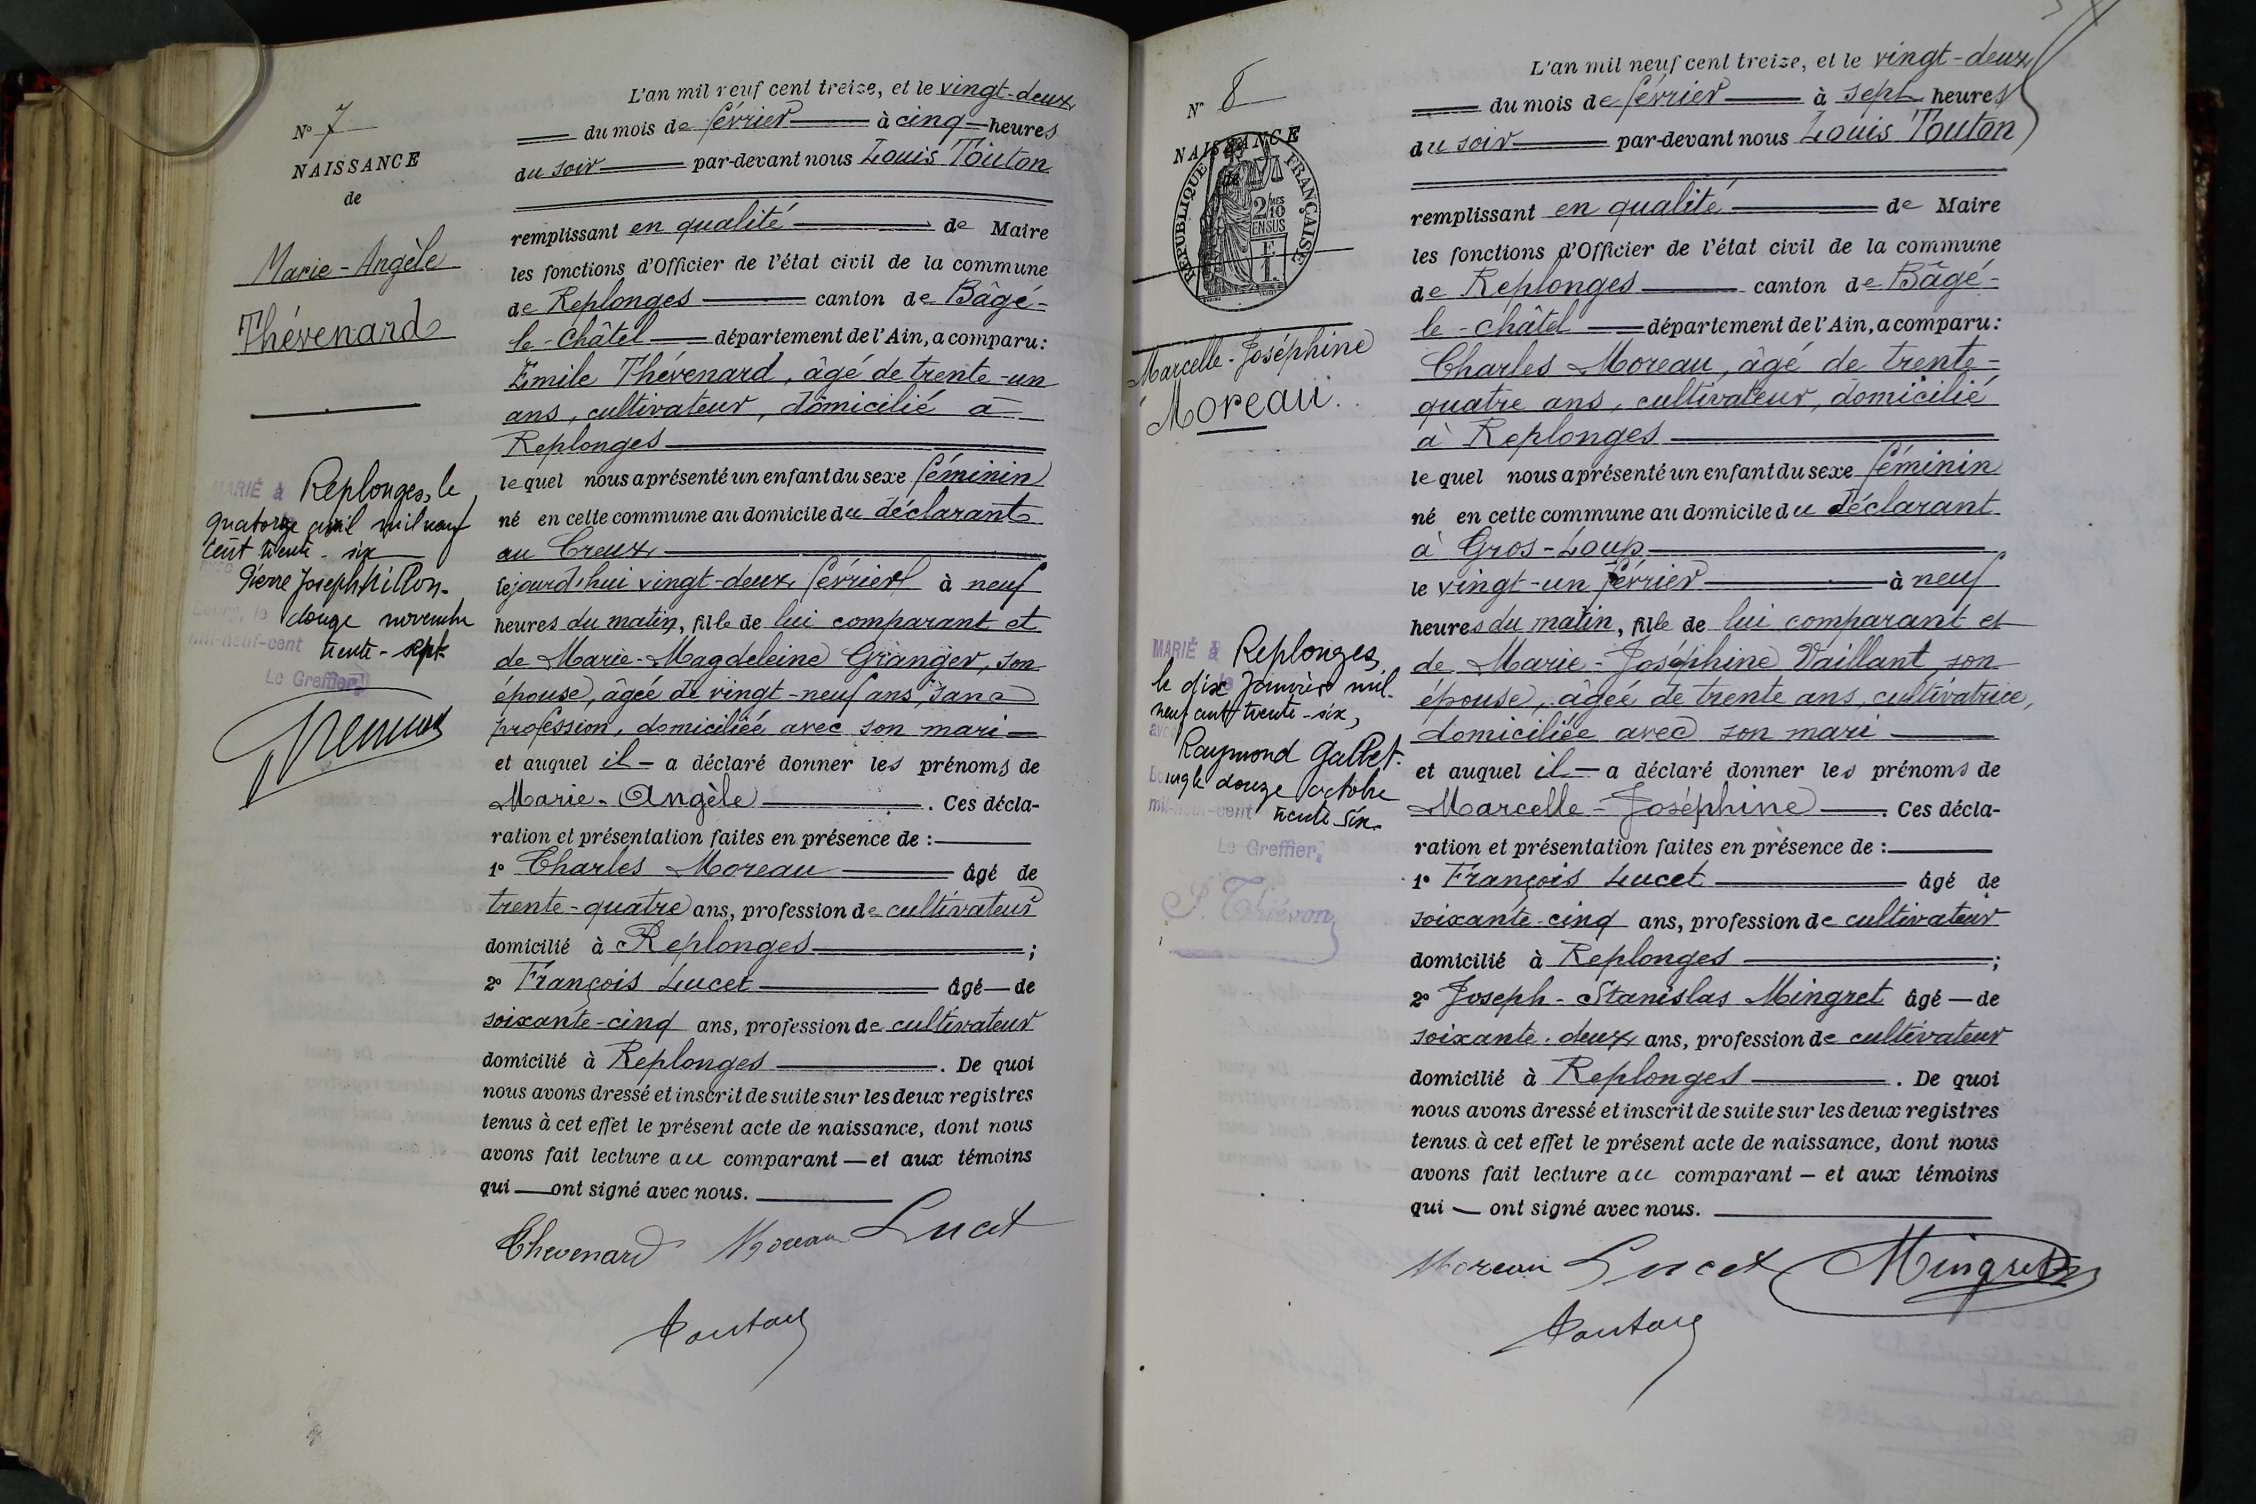 N° 7
NAISSANCE
de
Marie-Angèle
Thévenard
MARIÉ à Replonges, le
quatorze avril mil neuf
cent trente-six
Pierre Joseph
le douze novembre
mil-neuf-cent trente-sept
Le Greffier,
L'an mil neuf cent treize, et le vingt-deux
du mois de février à cinq heures
du soir par-devant nous Louis Touton
remplissant en qualité de Maire
les fonctions d'Officier de l'état civil de la commune
de Replonges canton de Bâgé-
le-Châtel département de l'Ain, a comparu:
Emile Thévenard, âgé de trente-un
ans, cultivateur, domicilié à
Replonges
lequel nous a présenté un enfant du sexe féminin
né en cette commune au domicile du déclarant
au Creux
lejourd'hui vingt-deux février à neuf
heures du matin, fille de lui comparant et
de Marie-Magdeleine Granger, son
épouse, âgée de vingt-neuf ans, sans
profession, domiciliée avec son mari
et auquel il a déclaré donner les prénoms de
Marie-Angèle. Ces décla-
ration et présentation faites en présence de :
1° Charles Moreau âgé de
trente-quatre ans, profession de cultivateur
domicilié à Replonges ;
2° François Lucet âgé de
soixante-cinq ans, profession de cultivateur
domicilié à Replonges. De quoi
nous avons dressé et inscrit de suite sur les deux registres
tenus à cet effet le présent acte de naissance, dont nous
avons fait lecture au comparant et aux témoins
qui ont signé avec nous.
Thevenard Moreau Lucet
Touton
N° 8
NAISSANCE
de
RÉPUBLIQUE FRANÇAISE
2/10 MES
EN SUS
Marcelle-Joséphine
Moreau
MARIÉ à Replonges
le dix janvier mil-
neuf cent trente-six,
avec
Raymond Gallet
Bourg le douze octobre
mil-neuf-cent trente six
Le Greffier,
P. Thévon
L'an mil neuf cent treize, et le vingt-deux
du mois de février à sept heures
du soir par-devant nous Louis Touton
remplissant en qualité de Maire
les fonctions d'Officier de l'état civil de la commune
de Replonges canton de Bâgé-
le-châtel département de l'Ain, a comparu:
Charles Moreau, âgé de trente-
quatre ans, cultivateur, domicilié
à Replonges
lequel nous a présenté un enfant du sexe féminin
né en cette commune au domicile du déclarant
à Gros-Loup
le vingt-un février à neuf
heures du matin, fille de lui comparant et
de Marie-Joséphine Vaillant, son
épouse, âgée de trente ans, cultivatrice,
domiciliée avec son mari
et auquel il a déclaré donner les prénoms de
Marcelle-Joséphine. Ces décla-
ration et présentation faites en présence de :
1° François Lucet âgé de
soixante-cinq ans, profession de cultivateur
domicilié à Replonges ;
2° Joseph-Stanislas Mingret âgé de
soixante-deux ans, profession de cultivateur
domicilié à Replonges. De quoi
nous avons dressé et inscrit de suite sur les deux registres
tenus à cet effet le présent acte de naissance, dont nous
avons fait lecture au comparant et aux témoins
qui ont signé avec nous.
Moreau Lucet Mingret
Touton